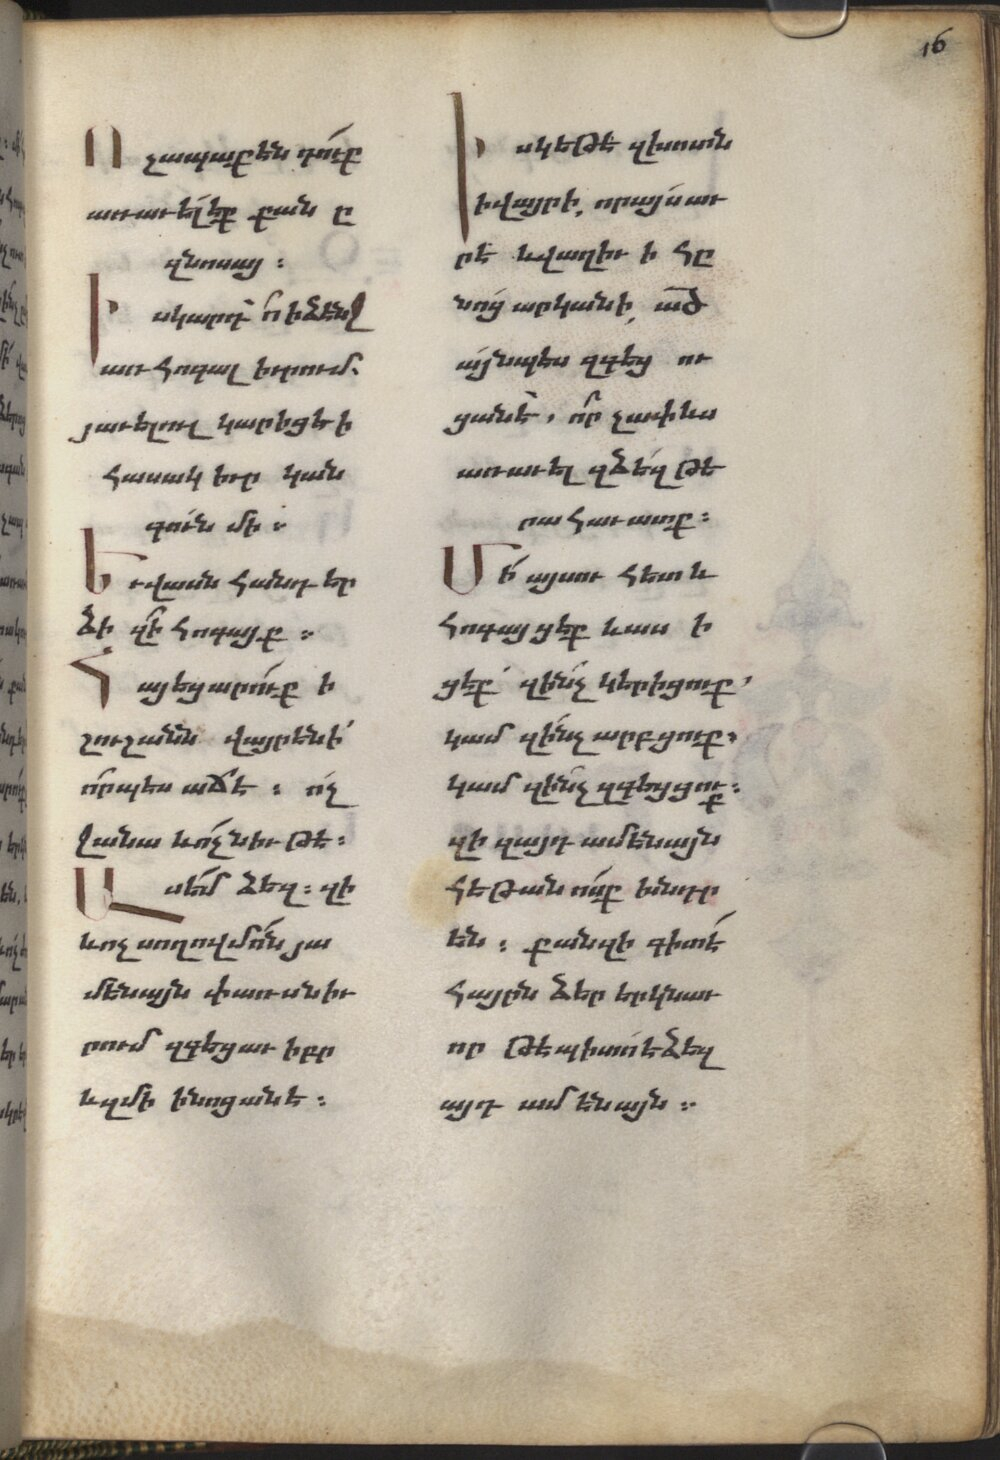 16
Ո չապաքէն դուք
առաւել էք քան ը
զնոսայ ։
Ի սկարդ ո՞ ի ձէնջ
առ հոգալ իւրում՝
յաւելուլ կարիցէ ի
հասակ իւր կան
գուն մի ։
Եւ վասն հանդեր
ձի զի՞ հոգայք ։
Հ այեցարուք ի
շուշանն վայրենի՛
ո՞րպէս աճէ ։ ոչ
ջանա և ոչ նիւթէ ։
Ասեմ ձեզ ։ զի
և ոչ սողովմոն յա
մենայն փառսն իւ
րում զգեցաւ իբր
և զմի ի նոցանէ ։
Իսկ եթէ զխոտն
ի վայրի, որ այսաւ
ր է և վաղիւ ի հը
նոց արկանի, ած
այնպես զգեց ու
ցանէ՝ ո՞ր չափ ևս
առաւել զձեզ թե
րահաւատք ։
Մի՛ այսու հետև
հոգայցէք և աս ի
ցէք՝ զի՞նչ կերիցուք՝
կամ զի՞նչ արբցուք՝
կամ զի՞նչ զգեցցուք ։
զի զայդ ամենայն
հեթանոսք խնդր
են ։ քանզի գիտէ
հայրն ձեր երկնաւ
որ թե պիտո է ձեզ
այդ ամենայն ։